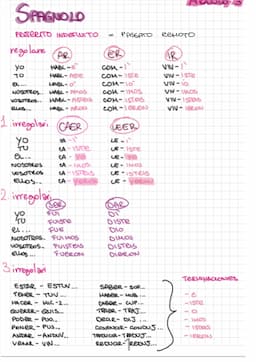 SPAGNOLO
PRETÉRITO INDEFINITO = PASSATO REMOTO
regolare AR ER IR
YO HABL-É COM-Í VIV-Í
TU HABL-ASTE COM-ISTE VIV-ISTE
EL... HABL-Ó COM-IÓ VIV-IÓ
NOSOTROS... HABL-AMOS COM-IMOS VIV-IMOS
VOSOTROS... HABL-ASTEIS COM-ISTEIS VIV-ISTEIS
ELLOS... HABL-ARON COM-IERON VIV-IERON
1. irregolari CAER LEER
YO CA-Í LE-Í
TU CA-ISTE LE-ISTE
EL... CA-YÓ LE-YÓ
NOSOTROS CA-IMOS LE-IMOS
VOSOTROS CA-ISTEIS LE-ISTEIS
ELLOS... CA-YERON LE-YERON
2. irregolari DAR
YO FUI DI
TU FUISTE DISTE
EL... FUE DIO
NOSOTROS. FUIMOS DIMOS
VOSOTROS FUISTEIS DISTEIS
ELLOS... FUERON DIERON
3. irregolari TERMINAZIONI
ESTAR - ESTUV... SABER - SUP...
TENER - TUV... HABER - HUB... -E
HACER - HIC-Z... CABER - CUP... -ISTE
QUERER - QUIS... TRAER - TRAJ... -O
PODER - PUD... DECIR - DIJ... -IMOS
PONER - PUS... -ISTEIS
ANDAR - ANDUV... -IERON
VENIR - VIN...